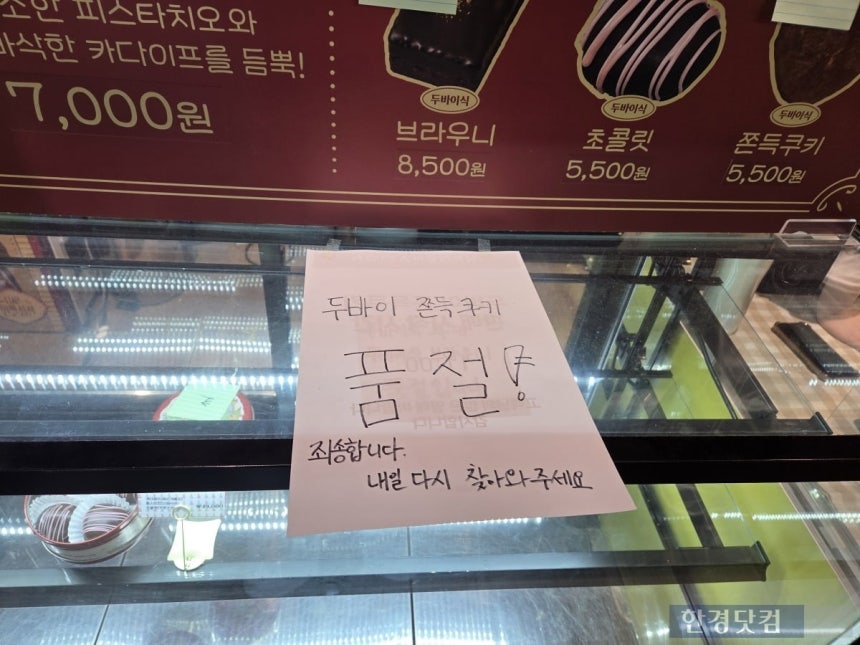 피스타치오와
바삭한 카다이프를 듬뿍!
7,000원
두바이식
브라우니
8,500원
두바이식
초콜릿
5,500원
두바이식
쫀득쿠키
5,500원
두바이 쫀득쿠키
품절!
죄송합니다.
내일 다시 찾아와주세요
한경닷컴